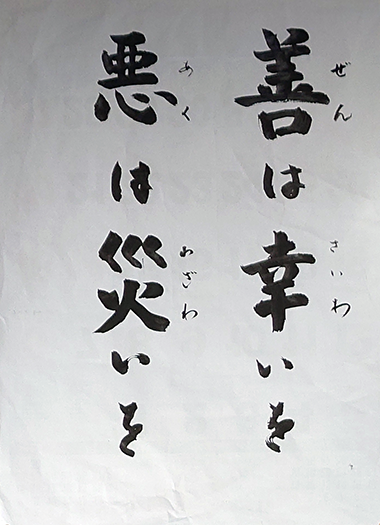 善は幸いを
ぜん
さいわ
悪は災いを
あく
わざわ